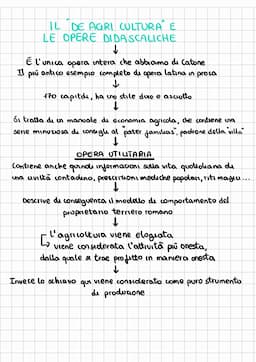 IL "DE AGRI CULTURA" E
LE OPERE DIDASCALICHE
È l'unica opera intera che abbiamo di Catone
Il più antico esempio completo di opera latina in prosa
170 capitoli, ha uno stile duro e asciutto
Si tratta di un manuale di economia agricola, che contiene un
serie minuziosa di consigli al "pater familias", padrone della "villa"
OPERA UTILITARIA
Contiene anche quindi informazioni sulla vita quotidiana di
una civiltà contadina, prescrizioni mediche popolari, riti magici...
Descrive di conseguenza il modello di comportamento del
proprietario terriero romano
L'agricoltura viene elogiata
viene considerata l'attività più onesta,
dalla quale si trae profitto in maniera onesta
Invece lo schiavo qui viene considerato come puro strumento
di produzione